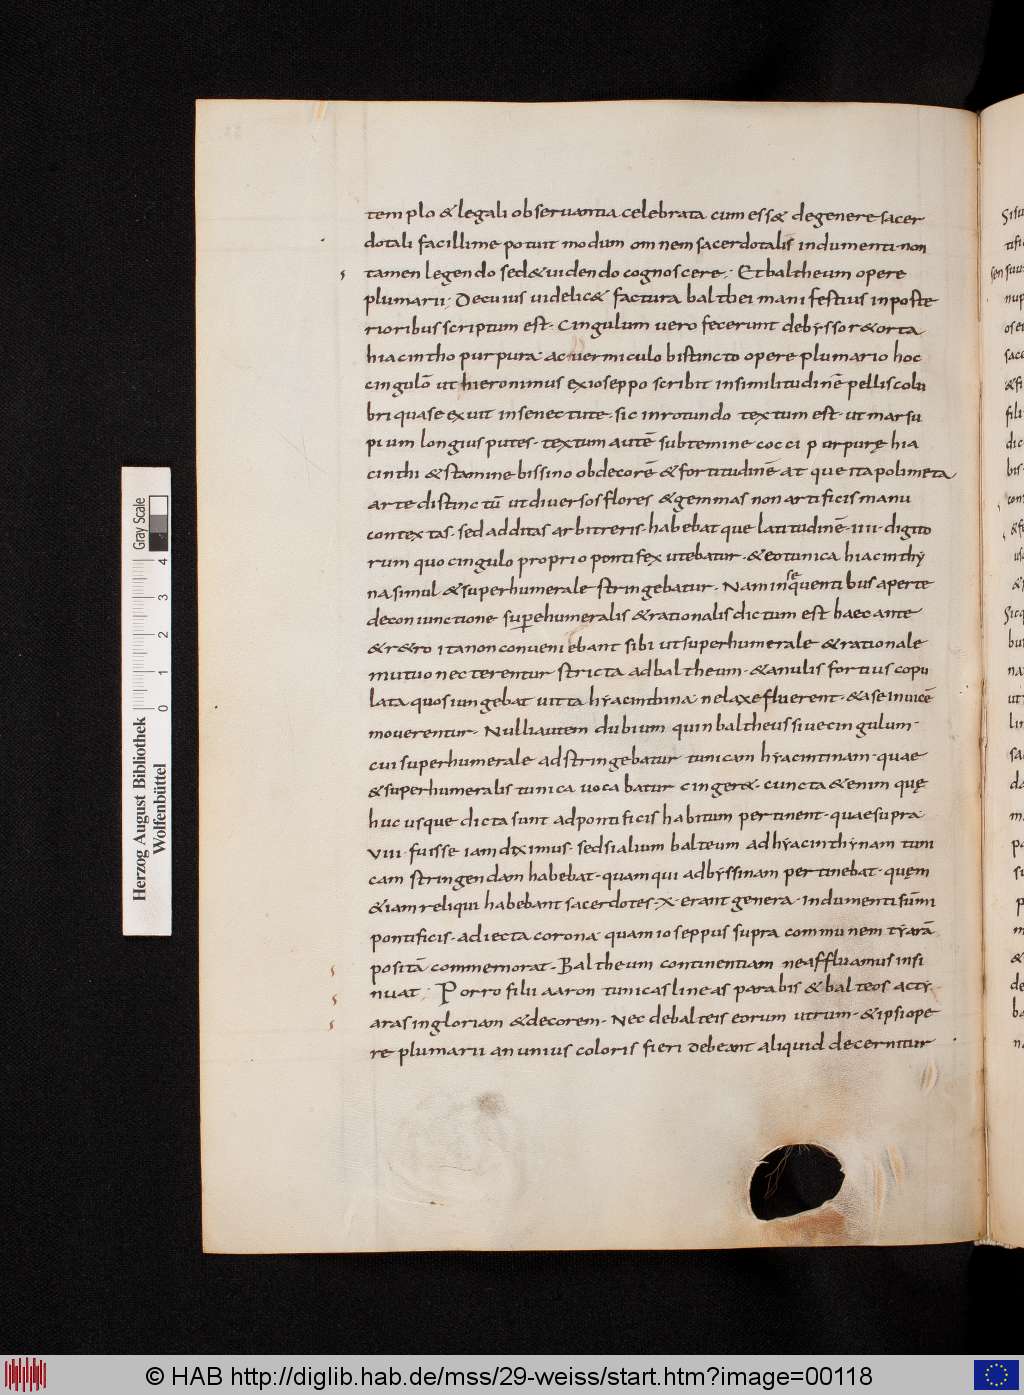 templo & legali observantia celebrata cum ess& degenere sacer
dotali facillime potuit modum omnem sacerdotalis indumenti· non
tamen legendo sed & uidendo cognoscere; Et baltheum opere
plumarii; De cuius uidelic& factura balthei manifestius in poste
rioribus scriptum est· Cingulum vero fecerunt de bysso r&orta
hiacintho purpura· ac uermiculo bistincto opere plumario hoc
cingulō ut hieronimus ex ioseppo scribit in similitudinē pellis colu
bri qua se exuit in senectute· sic in rotundo textum est· ut marsu
pium longius putes· textum autē subtemine cocci purpurę hia
cinthi & stamine bissino ob decorē & fortitudinē at que ita polimeta
arte distinctū ut diversos flores & gemmas non artificis manu
contextas· sed additas arbitreris· habebat que latitudinē· iiii· digito
rum quo cingulo proprio pontifex utebatur· & eo tunica hiacinthy
na simul & superhumerale stringebatur· Nam in sequentibus aperte
de coniunctione superhumeralis & rationalis dictum est haec ante
& r&ro ita non conveniebant sibi ut superhumerale & rationale
mutuo necterentur stricta ad baltheum· & anulis fortius copu
lata quos iungebat uitta hyacinthina· ne laxe fluerent· & a se inuicē
moverentur· Nulli autem dubium quin baltheus sive cingulum·
cui superhumerale adstringebatur tunicam hyacintinam· quae
& superhumeralis tunica uocabatur cinger&· cuncta & enim quę
huc usque dicta sunt ad pontificis habitum pertinent· quae supra
viii· fuisse iam diximus· sed si alium balteum ad hyacinthynam tuni
cam stringendam habebat· quam qui ad byssinam pertinebat· quem
& iam reliqui habebant sacerdotes· x· erant genera· indumenti sūmi
pontificis· adiecta corona· quam ioseppus supra communem tyarā
positā commemorat· Baltheum continentiam ne affluamus insi
nuat; Porro filii aaron tunicas lineas parabis & balteos ac ty
aras in gloriam & decorem· Nec de balteis eorum utrum· & ipsi ope
re plumarii an unius coloris fieri debeant aliquid decernitur
Herzog August Bibliothek
Wolfenbüttel
0 1 2 3 4
Gray Scale
© HAB http://diglib.hab.de/mss/29-weiss/start.htm?image=00118